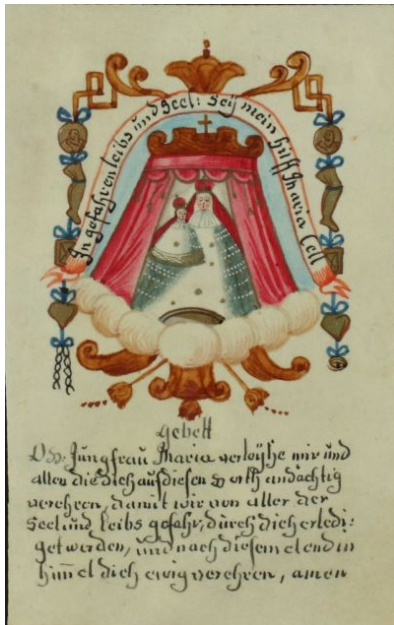 In gefahren leibs und Seel: Seÿ mein hülff Maria Cell
gebett
O ##: Jungfrau Maria verleÿhe mir und
allen die dich auf diesen orth andächtig
verehren, damit wir von aller der
Seel und leibs gefahr, durch dich erledi:
get werden, und nach diesem elend in
him̅el dich ewig verehren, amen